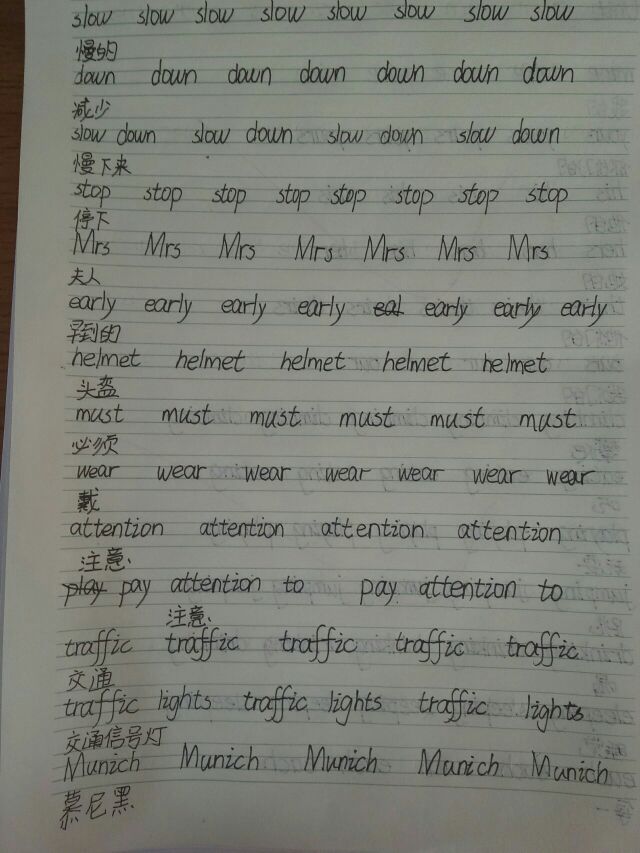 slow slow slow slow slow slow slow slow
慢的
down down down down down down down
减少
slow down slow down slow down slow down
慢下来
stop stop stop stop stop stop stop stop
停下
Mrs Mrs Mrs Mrs Mrs Mrs Mrs
夫人
early early early early eal early early early
早到的
helmet helmet helmet helmet helmet
头盔
must must must must must must
必须
wear wear wear wear wear wear wear
戴
attention attention attention attention
注意
play pay attention to pay attention to
注意
traffic traffic traffic traffic traffic
交通
traffic lights traffic lights traffic lights
交通信号灯
Munich Munich Munich Munich Munich
慕尼黑